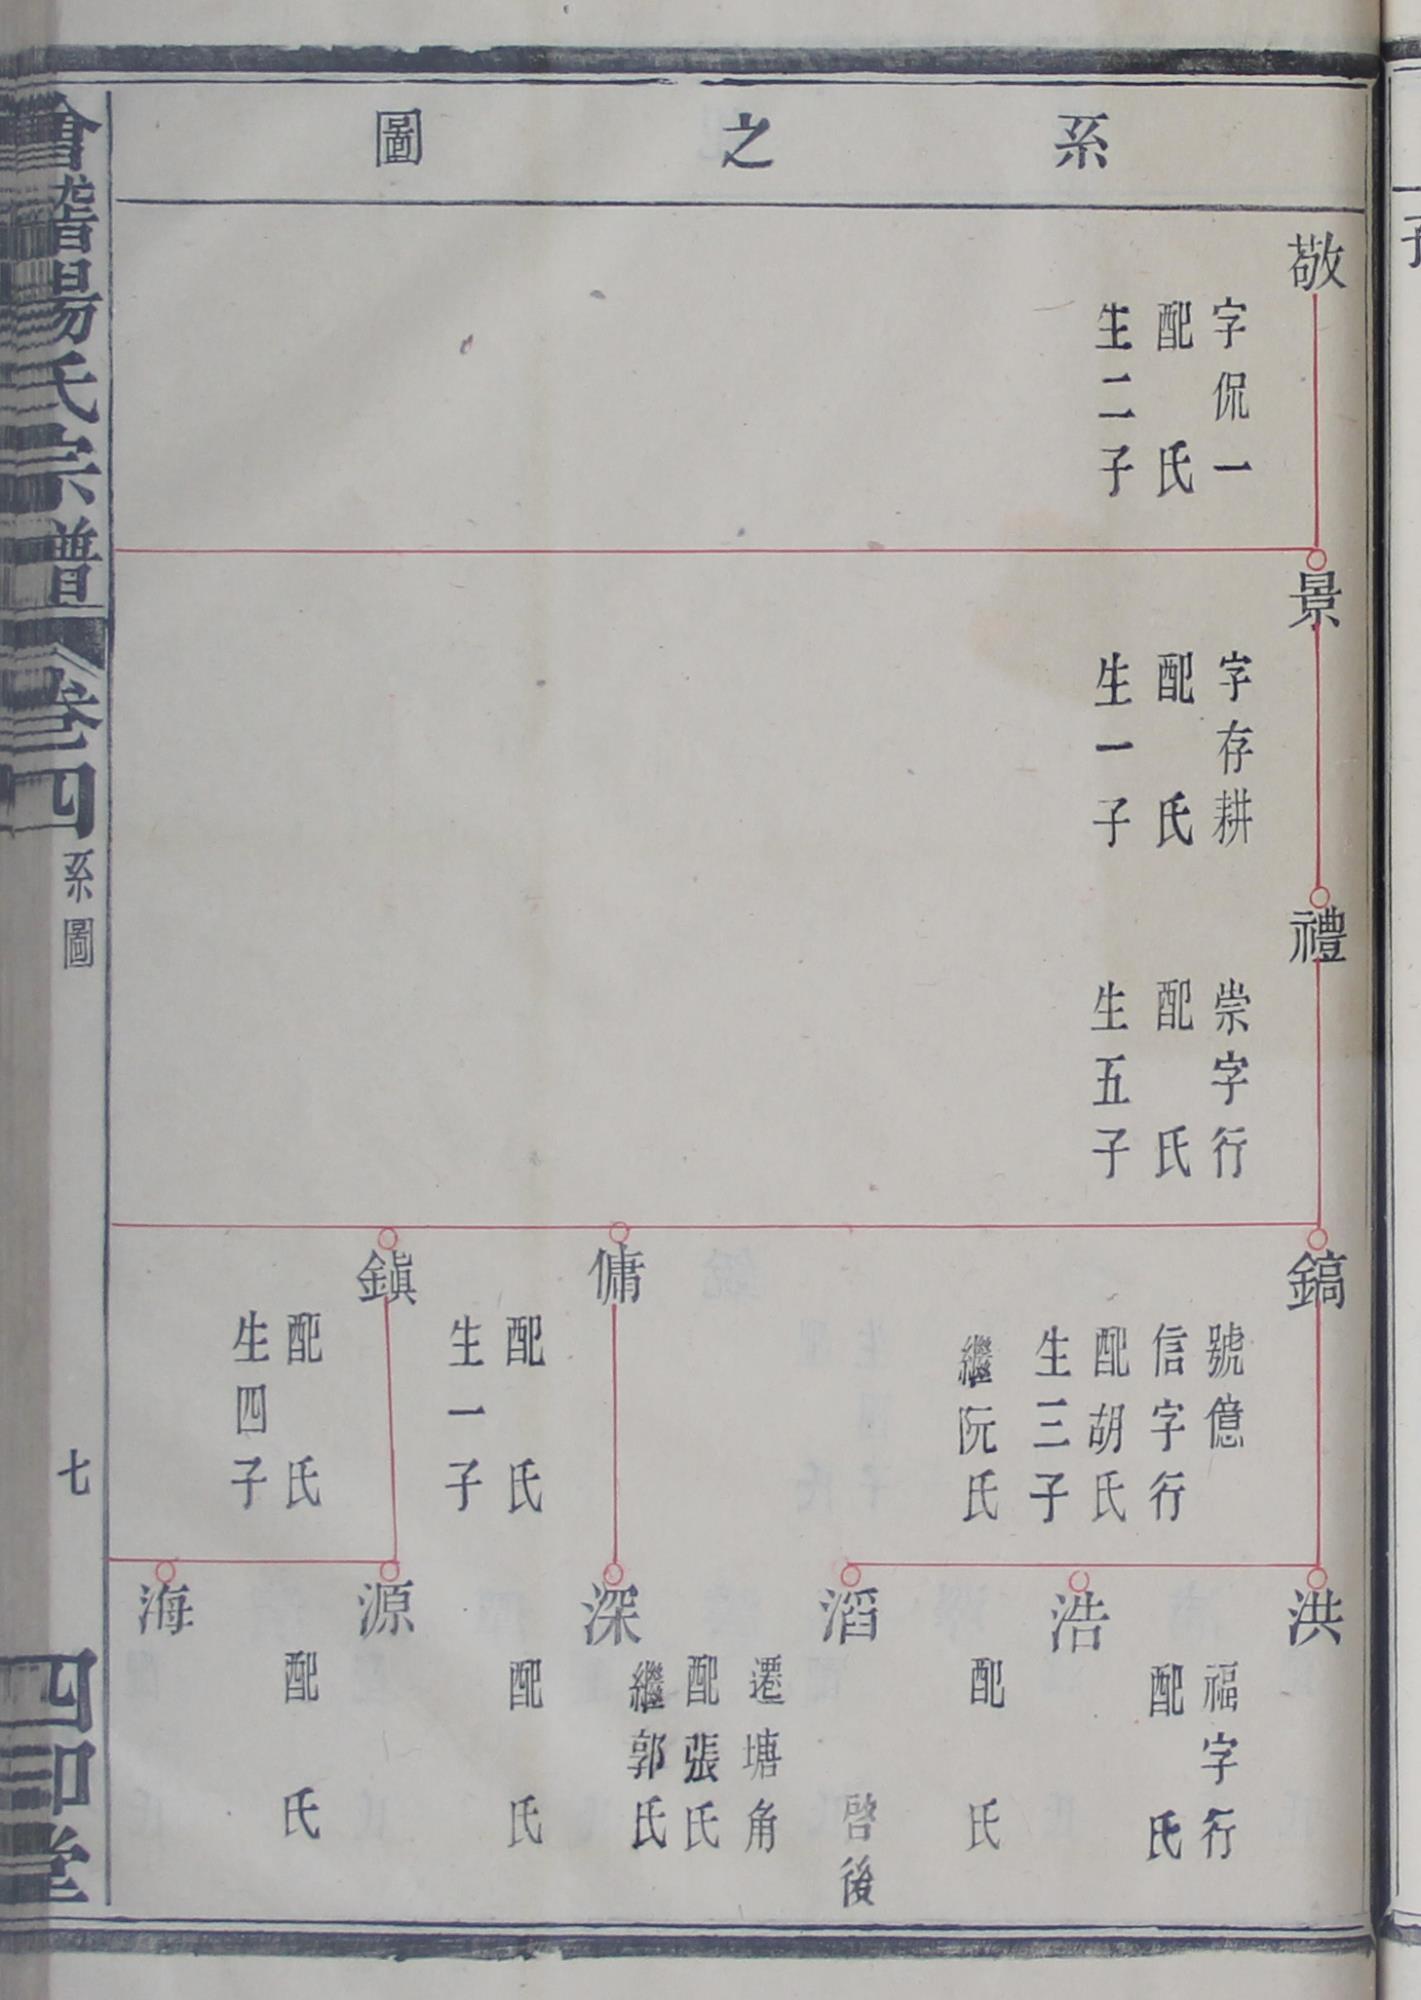 系之圖
敬
字侃一
配 氏
生二子
景
字存耕
配 氏
生一子
禮
崇字行
配 氏
生五子
鎬
號億
信字行
配胡氏
生三子
繼阮氏
傭
配 氏
生一子
鎭
配 氏
生四子
洪
福字行
配 氏
浩
配 氏
滔
啓後
遷塘角
配張氏
繼郭氏
深
配 氏
源
配 氏
海
會稽楊氏宗譜
卷四
系圖
七
四知堂
子